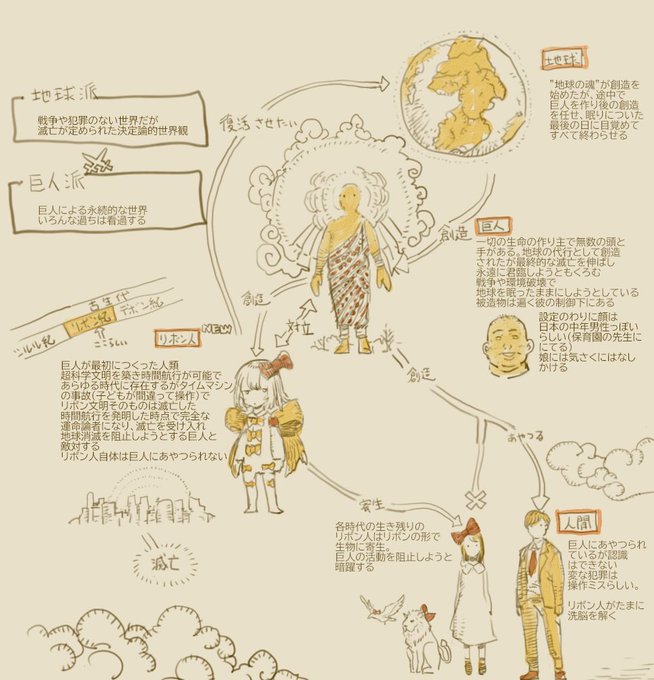 地球派
戦争や犯罪のない世界だが
滅亡が定められた決定論的世界観
巨人派
巨人による永続的な世界
いろんな過ちは看過する
復活させたい
地球
"地球の魂"が創造を
始めたが、途中で
巨人を作り後の創造
を任せ、眠りについた
最後の日に目覚めて
すべて終わらせる
創造
巨人
一切の生命の作り主で無数の頭と
手がある。地球の代行として創造
されたが最終的な滅亡を伸ばし
永遠に君臨しようともくろむ
戦争や環境破壊で
地球を眠ったままにしようとしている
被造物は遍く彼の制御下にある
設定のわりに顔は
日本の中年男性っぽい
らしい(保育園の先生に
にてる)
娘には気さくにはなし
かける
古生代
シルル紀
リボン紀
デボン紀
ここらへん
創造
対立
リボン人
NEW
巨人が最初につくった人類
超科学文明を築き時間航行が可能で
あらゆる時代に存在するがタイムマシン
の事故(子どもが間違って操作)で
リボン文明そのものは滅亡した
時間航行を発明した時点で完全な
運命論者になり、滅亡を受け入れ
地球消滅を阻止しようとする巨人と
敵対する
リボン人自体は巨人にあやつられない
滅亡
創造
あやつる
寄生
各時代の生き残りの
リボン人はリボンの形で
生物に寄生。
巨人の活動を阻止しようと
暗躍する
人間
巨人にあやつられ
ているが認識
はできない
変な犯罪は
操作ミスらしい。
リボン人がたまに
洗脳を解く